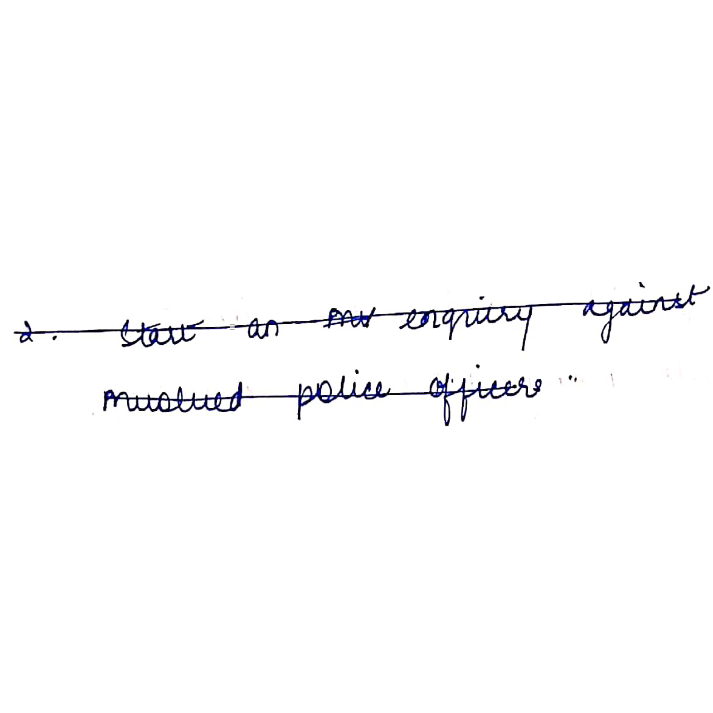 2. Start an inv enquiry against
involved police officers